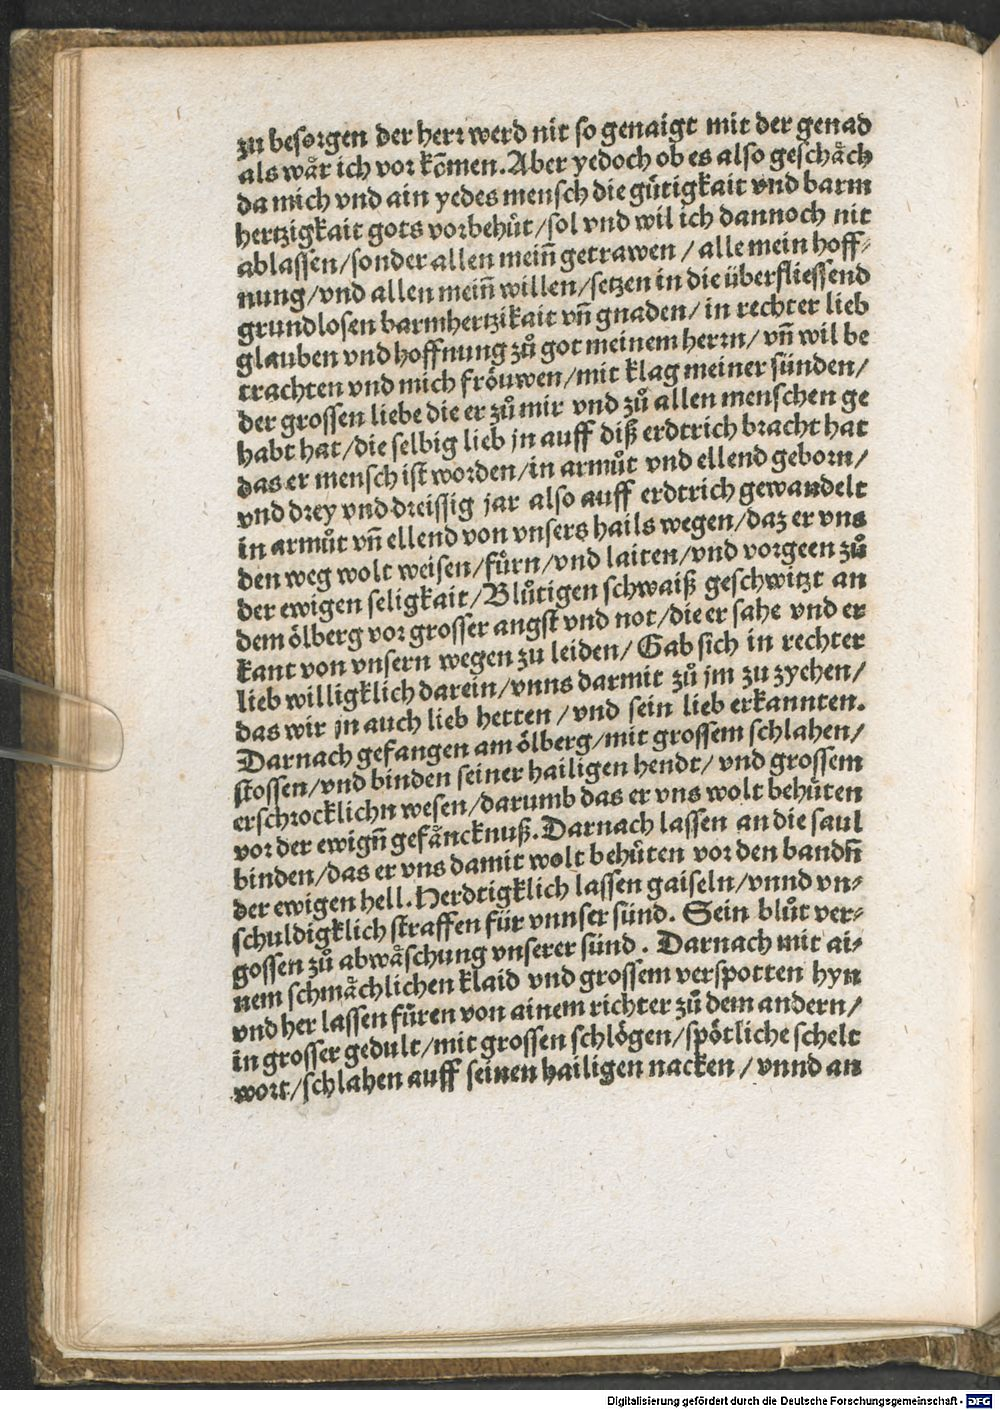 zu besorgen der herr werd nit so genaigt mit der genad
als wår ich vor kōmen. Aber yedoch ob es also geschåch
da mich vnd ain yedes mensch die gütigkait vnd barm
hertzigkait gots vorbehůt/sol vnd wil ich dannoch nit
ablassen/sonder allen mein̄ getrawen / alle mein hoff⸗
nung/vnd allen mein̄ willen/setzen in die überfliessend
grundlosen barmhertzikait vn̄ gnaden/ in rechter lieb
glauben vnd hoffnung zů got meinem herrn/ vn̄ wil be
trachten vnd mich fröuwen/mit klag meiner sünden/
der grossen liebe die er zů mir vnd zů allen menschen ge
habt hat/die selbig lieb jn auff diß erdtrich bracht hat
das er mensch ist worden/in armůt vnd ellend geborn/
vnd drey vnd dreissig jar also auff erdtrich gewandelt
in armůt vn̄ ellend von vnsers hails wegen/daz er vns
den weg wolt weisen/fürn/vnd laiten/vnd vorgeen zů
der ewigen seligkait/Blůtigen schwaiß geschwitzt an
dem ölberg vor grosser angst vnd not/die er sahe vnd er
kant von vnsern wegen zu leiden/ Gab sich in rechter
lieb willigklich darein/vnns darmit zů jm zu zychen/
das wir jn auch lieb hetten /vnd sein lieb erkannten.
Darnach gefangen am ölberg/mit grossem schlahen/
stossen/vnd binden seiner hailigen hendt/ vnd grossem
erschrocklichn wesen/darumb das er vns wolt behüten
vor der ewign̄ gefåncknuß. Darnach lassen an die saul
binden/das er vns damit wolt behüten vor den bandn̄
der ewigen hell. Herdtigklich lassen gaiseln/vnnd vn⸗
schuldigklich straffen für vnnser sünd. Sein blůt ver⸗
gossen zů abwåschung vnserer sünd . Darnach mit ai⸗
nem schmåchlichen klaid vnd grossem verspotten hyn
vnd her lassen füren von ainem richter zů dem andern/
in grosser gedult/mit grossen schlögen/spötliche schelt
wort/schlahen auff seinen hailigen nacken / vnnd an
Digitalisierung gefördert durch die Deutsche Forschungsgemeinschaft - DFG